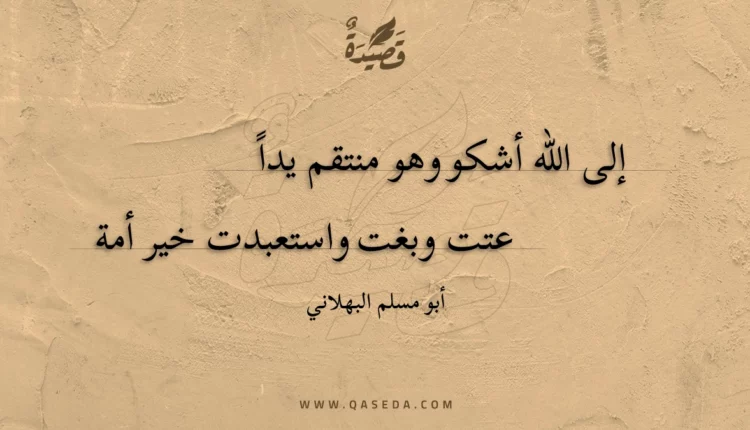 قَصِيدَةٌ
إلى الله أشكو وهو منتقم يداً
عتت وبغت واستعبدت خير أمة
أبو مسلم البهلاني
WWW.QASEDA.COM